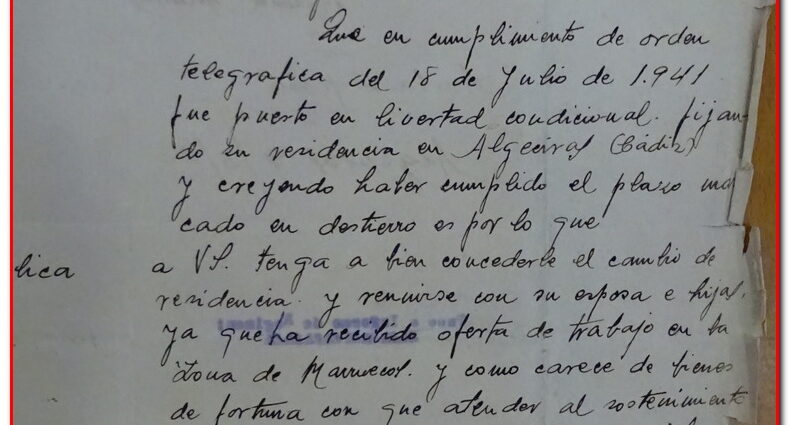 Que en cumplimiento de orden
telegrafica del 18 de Julio de 1.941
fue puesto en livertad condicional. fijan-
do su residencia en Algeciras (Cádiz)
y creyendo haber cumplido el plazo mar
cado en destierro es por lo que
lica a VS. tenga a bien concederle el cambio de
residencia. y reunirse con su esposa e hijas.
ya que ha recibido oferta de trabajo en la
Zona de Marruecos. y como carece de bienes
de fortuna con que atender al sostenimiento